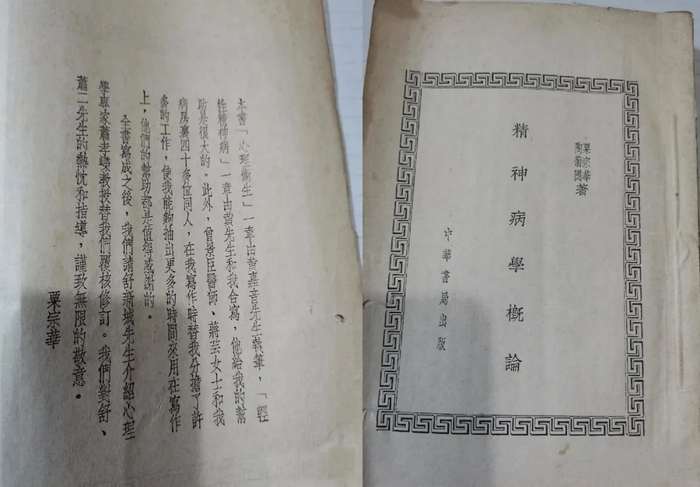 本書「心理衛生」一章由黃嘉音先生執筆,「輕
性精神病」一章由黃先生和我合寫,他給我的幫
助是很大的。此外,曾景臣醫師、蔣芸女士和我
病房裏四十多位同人,在我寫作時替我分擔了許
多的工作,使我能夠抽出更多的時間來用在寫作
上,他們的幫助都是值得感謝的。
全書寫成之後,我們請舒新城先生介紹心理
學專家蕭孝嶸教授替我們覆核修訂。我們對舒、
蕭二先生的熱忱和指導,謹致無限的敬意。
粟宗華
粟宗華
陶菊隱
著
精神病學概論
中華書局出版